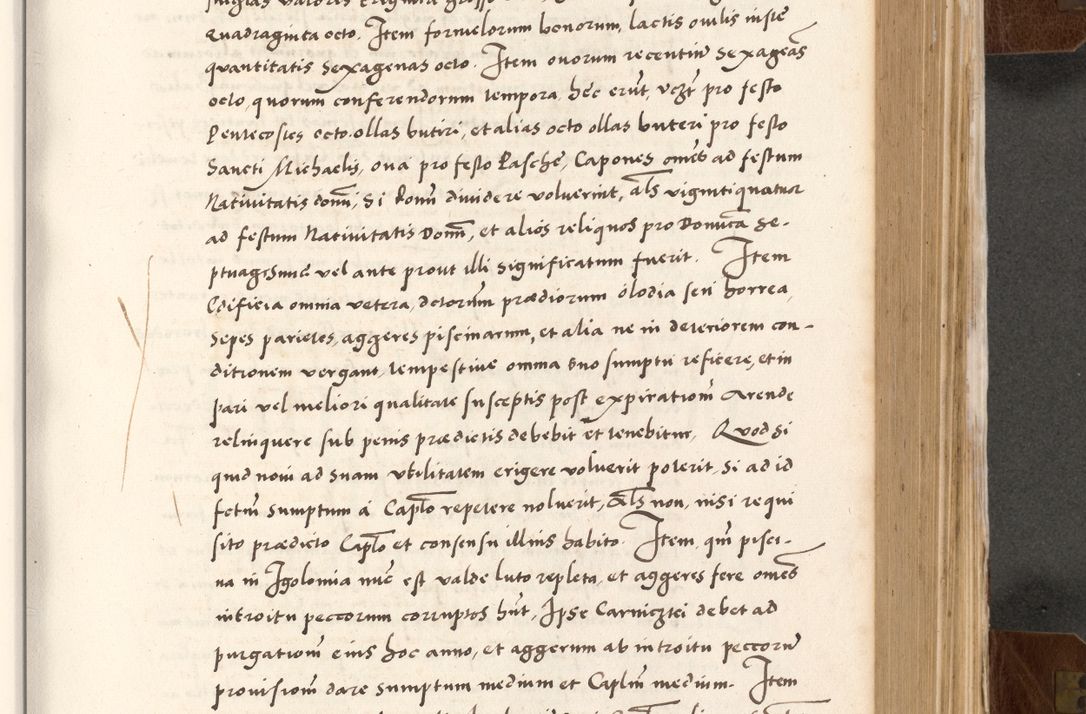 Quadraginta octo. Item formelorum bonorum, lactis ovilis iuste
quantitatis sexagenas octo. Item ovorum recentium sexagenas
octo, quorum conferendorum tempora hec erunt, vczt pro festo
Pentecostes octo ollas butiri, et alias octo ollas buteri pro festo
Sancti Michaelis, ova pro festo Pasche, Capones omnes ad festum
Nativitatis domini, Si domini dividere voluerint, als vigintiquatuor
ad festum Nativitatis Domini, et alios reliquos pro Dominica Se-
ptuagesime vel ante prout illi significatum fuerit. Item
Edificia omnia vetera, dictorum prædiorum olodia seu horrea,
Sepes parietes, aggeres piscinarum, et alia ne in deteriorem con-
ditionem vergant, tempestive omnia suo sumptu reficere, et in
pari vel meliori qualitate susceptis post expirationem Arende
relinquere sub penis prædictis debebit et tenebitur, Quod si
quid novi ad suam utilitatem erigere voluerit poterit, Si ad id
factum sumptum a Caplo repetere noluerit, Als non, nisi requi
sito prædicto Caplo et consensu illius habito. Item, qm pisci-
na in Igolomia nunc est valde luto repleta, et aggeres fere omnes
introitu peccorum corruptos hnt, Ipse Carniczki debet ad
purgationem eius hoc anno, et aggerum ab introitu peccorum
provisionem dare sumptum medium et Caplm medium. Item